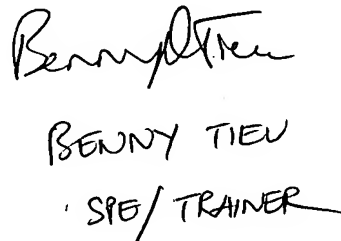 Benny Q Tieu
BENNY TIEU
SPE/ TRAINER